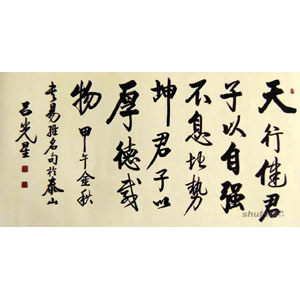 天行健君
子以自强
不息地势
坤君子以
厚德载
物 甲午金秋
易经名句於泰山
吕光星